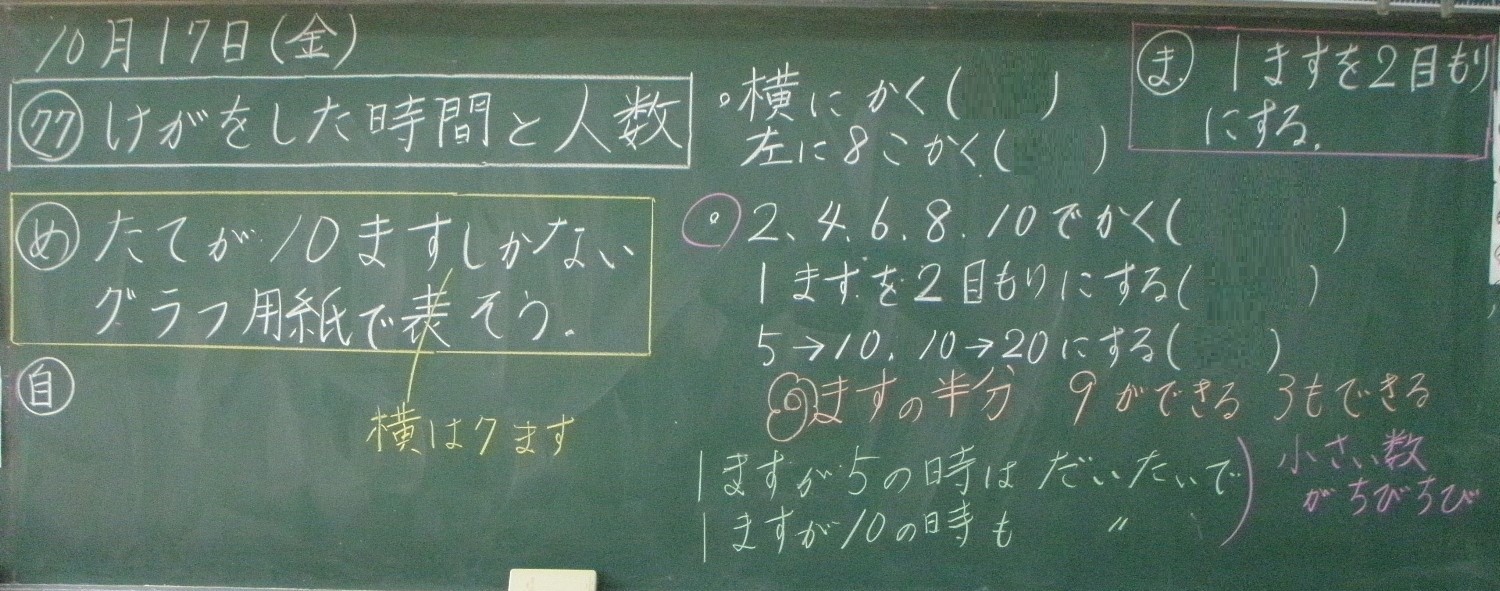 10月17日(金)
77 けがをした時間と人数
め たてが10ますしかない
グラフ用紙で表そう.
自
横は7ます
横にかく( )
左に8こかく( )
2、4、6、8、10でかく( )
1ますを2目もりにする( )
5→10、10→20にする( )
ますの半分 9ができる 3もできる
1ますが5の時は だいたいで
1ますが10の時も 〃
小さい数
がちびちび
ま 1ますを2目もり
にする.